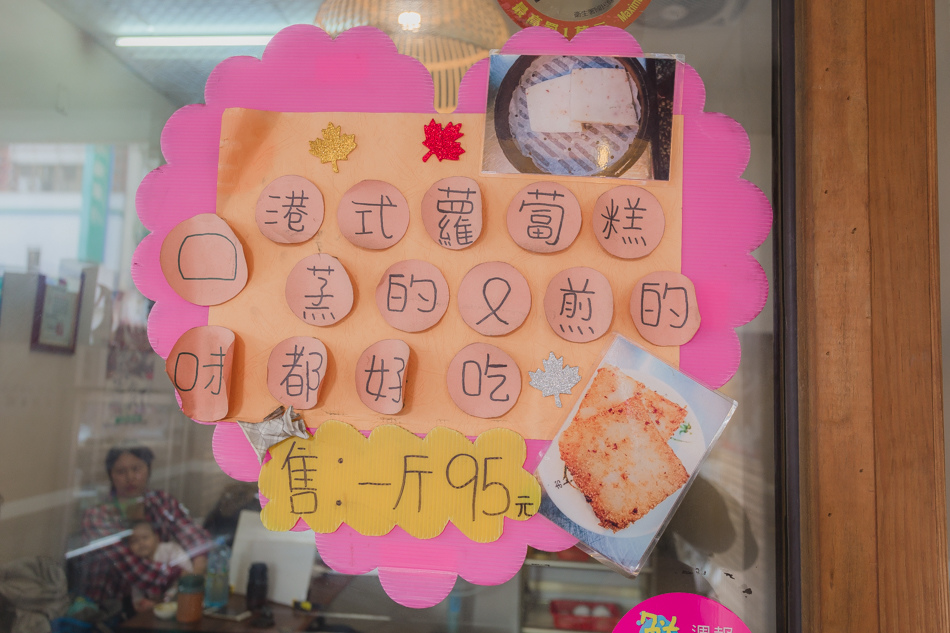 港式蘿蔔糕
口蒸的又煎的
味都好吃
售：一斤95元